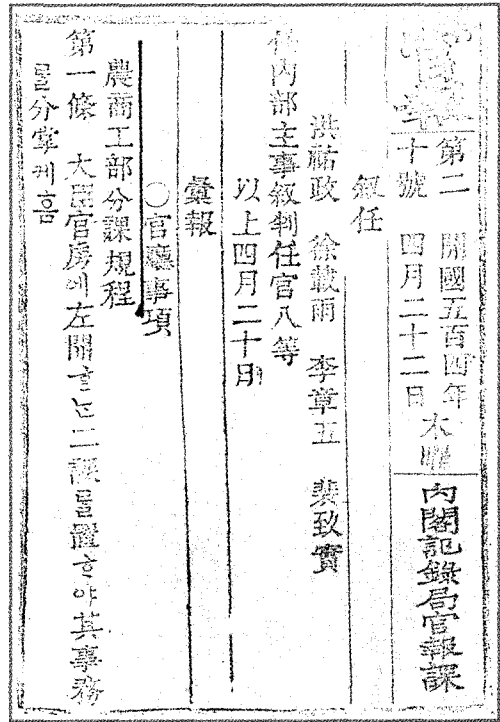 官報
第二十號
開國五百四年
四月二十二日
木曜
內閣記錄局官報課
敍任
洪祐政 徐載雨 李章五 裵致實
任內部主事敍判任官八等
以上四月二十日
彙報
○官廳事項
農商工部分課規程
第一條 大臣官房에左開ᄒᆞᄂᆞᆫ二課를置ᄒᆞ야其事務
를分掌케홈